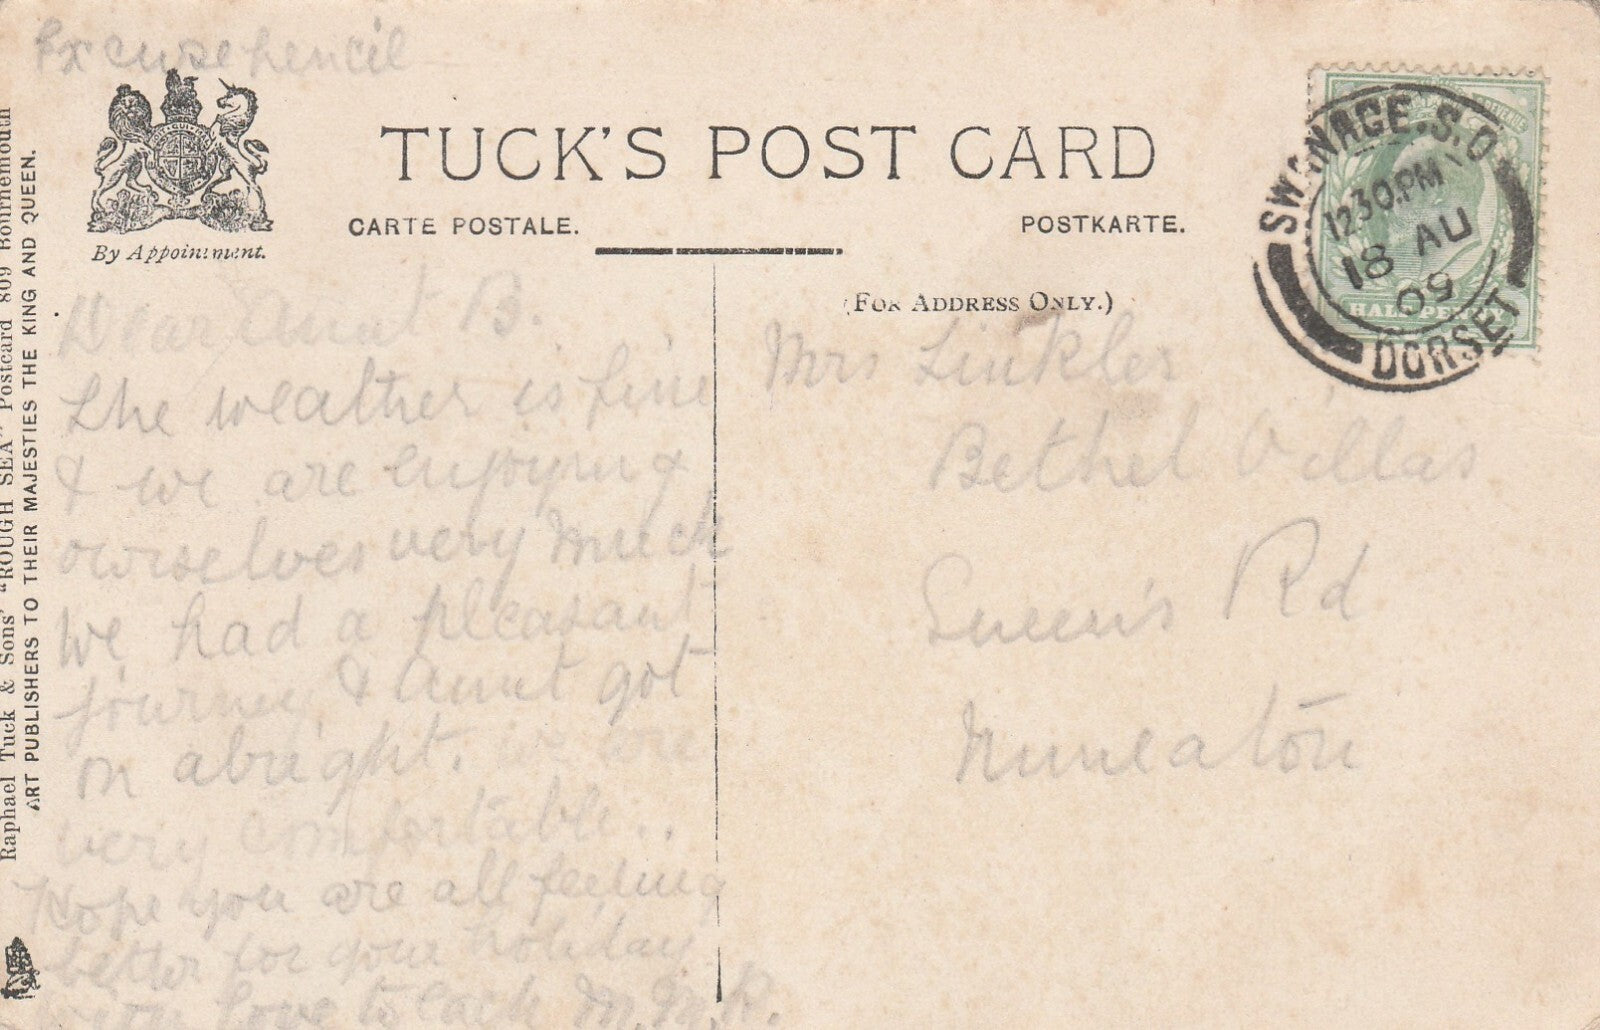 Excuse pencil
By Appointment.
TUCK'S POST CARD
CARTE POSTALE.
POSTKARTE.
(FOR ADDRESS ONLY.)
SWANAGE.S.O
12.30.PM
18 AU
09
DORSET
HALFPENNY
Dear Aunt B.
The weather is fine
& we are enjoying
ourselves very much
We had a pleasant
journey & Aunt got
on alright. we are
very comfortable..
Hope you are all feeling
better for your holiday
love to each M.M.R.
Mrs Linkler
Bethel Villas
Queen's Rd
Nuneaton
Raphael Tuck & Sons' "ROUGH SEA" Postcard 809 Bournemouth
ART PUBLISHERS TO THEIR MAJESTIES THE KING AND QUEEN.